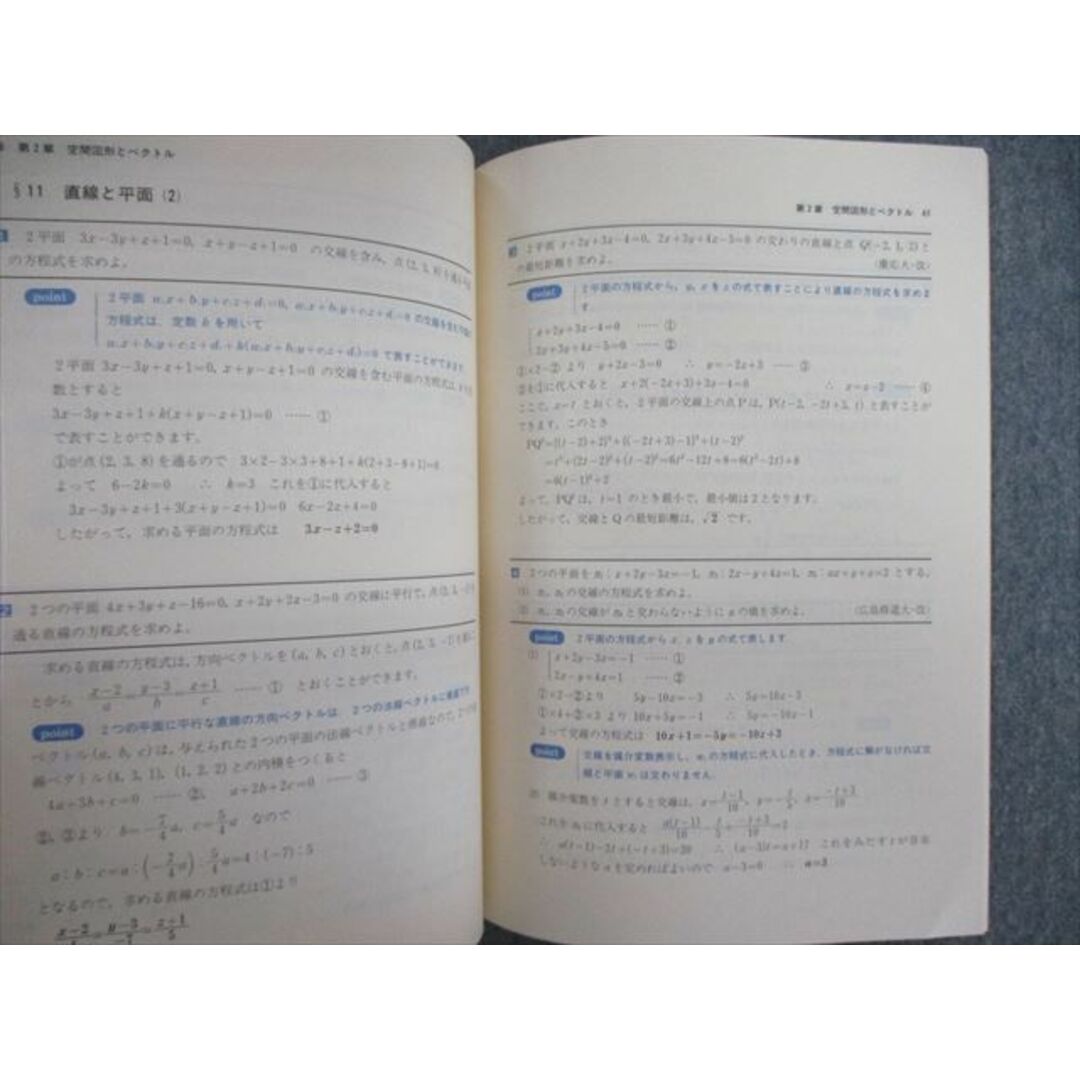 第2章 空間図形とベクトル
§11 直線と平面 (2)
2平面 3x-3y+z+1=0, x+y-z+1=0 の交線を含み,点(2, 3, 8)を通る平面
の方程式を求めよ。
point
2平面 a₁x+b₁y+c₁z+d₁=0, a₂x+b₂y+c₂z+d₂=0 の交線を含む平面の
方程式は, 定数 k を用いて
a₁x+b₁y+c₁z+d₁+k(a₂x+b₂y+c₂z+d₂)=0 で表すことができます
2平面 3x-3y+z+1=0, x+y-z+1=0 の交線を含む平面の方程式は,
数とすると
3x-3y+z+1+k(x+y-z+1)=0 …… ①
で表すことができます。
①が点(2, 3, 8)を通るので 3×2-3×3+8+1+k(2+3-8+1)=0
よって 6-2k=0 ∴ k=3 これを①に代入すると
3x-3y+z+1+3(x+y-z+1)=0 6x-2z+4=0
したがって, 求める平面の方程式は 3x-z+2=0
2 2つの平面 4x+3y+z-16=0, x+2y+2z-3=0 の交線に平行で,点(2, 3, -1)を
通る直線の方程式を求めよ。
求める直線の方程式は, 方向ベクトルを(a, b, c)とおくと, 点(2, 3, -1)を通るこ
とから (x-2)/a=(y-3)/b=(z+1)/c …… ① とおくことができます。
point
2つの平面に平行な直線の方向ベクトルは, 2つの法線ベクトルに垂直です
ベクトル(a, b, c)は, 与えられた2つの平面の法線ベクトルと垂直なので, 2つの法
線ベクトル(4, 3, 1), (1, 2, 2)との内積をつくると
4a+3b+c=0 …… ②, a+2b+2c=0 …… ③
②, ③より b=-7/4 a, c=5/4 a なので
a:b:c=a:(-7/4 a):5/4 a=4:(-7):5
となるので, 求める直線の方程式は①より
(x-2)/4=(y-3)/-7=(z+1)/5
第2章 空間図形とベクトル
3 2平面 x+2y+3z-4=0, 2x+3y+4z-5=0 の交わりの直線と点 Q(-2, 1, 2)と
の最短距離を求めよ。 (慶応大・改)
point
2平面の方程式から, y, x を z の式で表すことにより直線の方程式を求めま
す。
x+2y+3z-4=0 …… ①
2x+3y+4z-5=0 …… ②
①×2-②より y+2z-3=0 ∴ y=-2z+3 …… ③
③を①に代入すると x+2(-2z+3)+3z-4=0 ∴ x=z-2 …… ④
ここで, z=t とおくと, 2平面の交線上の点Pは, P(t-2, -2t+3, t) と表すことが
できます。このとき
PQ²={(t-2)+2}²+{(-2t+3)-1}²+(t-2)²
=t²+(2t-2)²+(t-2)²=6t²-12t+8=6(t²-2t)+8
=6(t-1)²+2
よって, PQ²は, t=1 のとき最小で, 最小値は2となります。
したがって, 交線とQの最短距離は, √2 です。
4 2つの平面を π₁: x+2y-3z=-1, π₂: 2x-y+4z=1, π₃: ax+y+z=2 とする。
(1) π₁, π₂の交線の方程式を求めよ。
(2) π₁, π₂の交線が π₃と交わらないように a の値を求めよ。 (広島修道大・改)
point
2平面の方程式から x, z を y の式で表します
(1) x+2y-3z=-1 …… ①
2x-y+4z=1 …… ②
①×2-②より 5y-10z=-3 ∴ 5y=10z-3
①×4+②×3より 10x+5y=-1 ∴ 5y=-10x-1
よって交線の方程式は 10x+1=-5y=-10z+3
point
交線を媒介変数表示し, π₃の方程式に代入したとき, 方程式に解がなければ交
線と平面 π₃は交わりません。
(2) 媒介変数を t とすると交線は, x=(t-1)/10, y=-t/5, z=(-t+3)/10
これを π₃に代入すると a(t-1)/10-t/5+(-t+3)/10=2
∴ a(t-1)-2t+(-t+3)=20 ∴ (a-3)t=a+17 これをみたす t が存在
しないような a を定めればよいので a-3=0 ∴ a=3